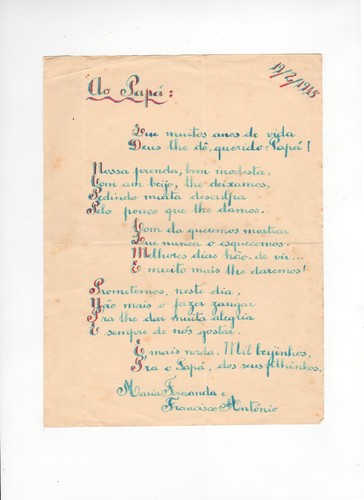 19/2/1945
Ao Papá:
Que muitos anos de vida
Deus lhe dê, querido Papá!
Nossa prenda, bem modesta,
Com um beijo, lhe deixamos,
Pedindo muita desculpa
Pelo pouco que lhe damos.
Com da queremos mostrar
Que nunca o esquecemos.
Melhores dias hão-de vir...
E muito mais lhe daremos!
Prometemos, neste dia,
Não mais o fazer zangar
Pra lhe dar muita alegria
E sempre de nós gostar.
E mais nada. Mil beijinhos,
Pra o Papá, dos seus filhinhos,
Maria Fernanda e
Francisco António